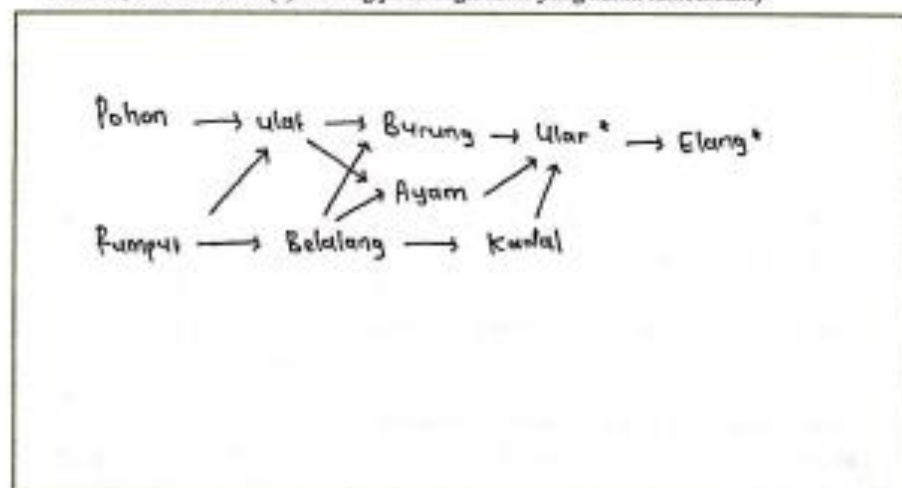 Pohon → ulat → Burung → Ular * → Elang *
Ayam
Rumput → Belalang → Kadal